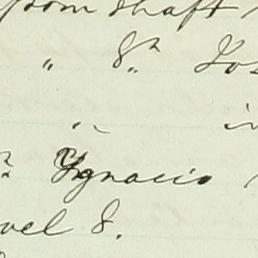 from shaft
" 8th Jos
" in
Ygnacio
vel 8.